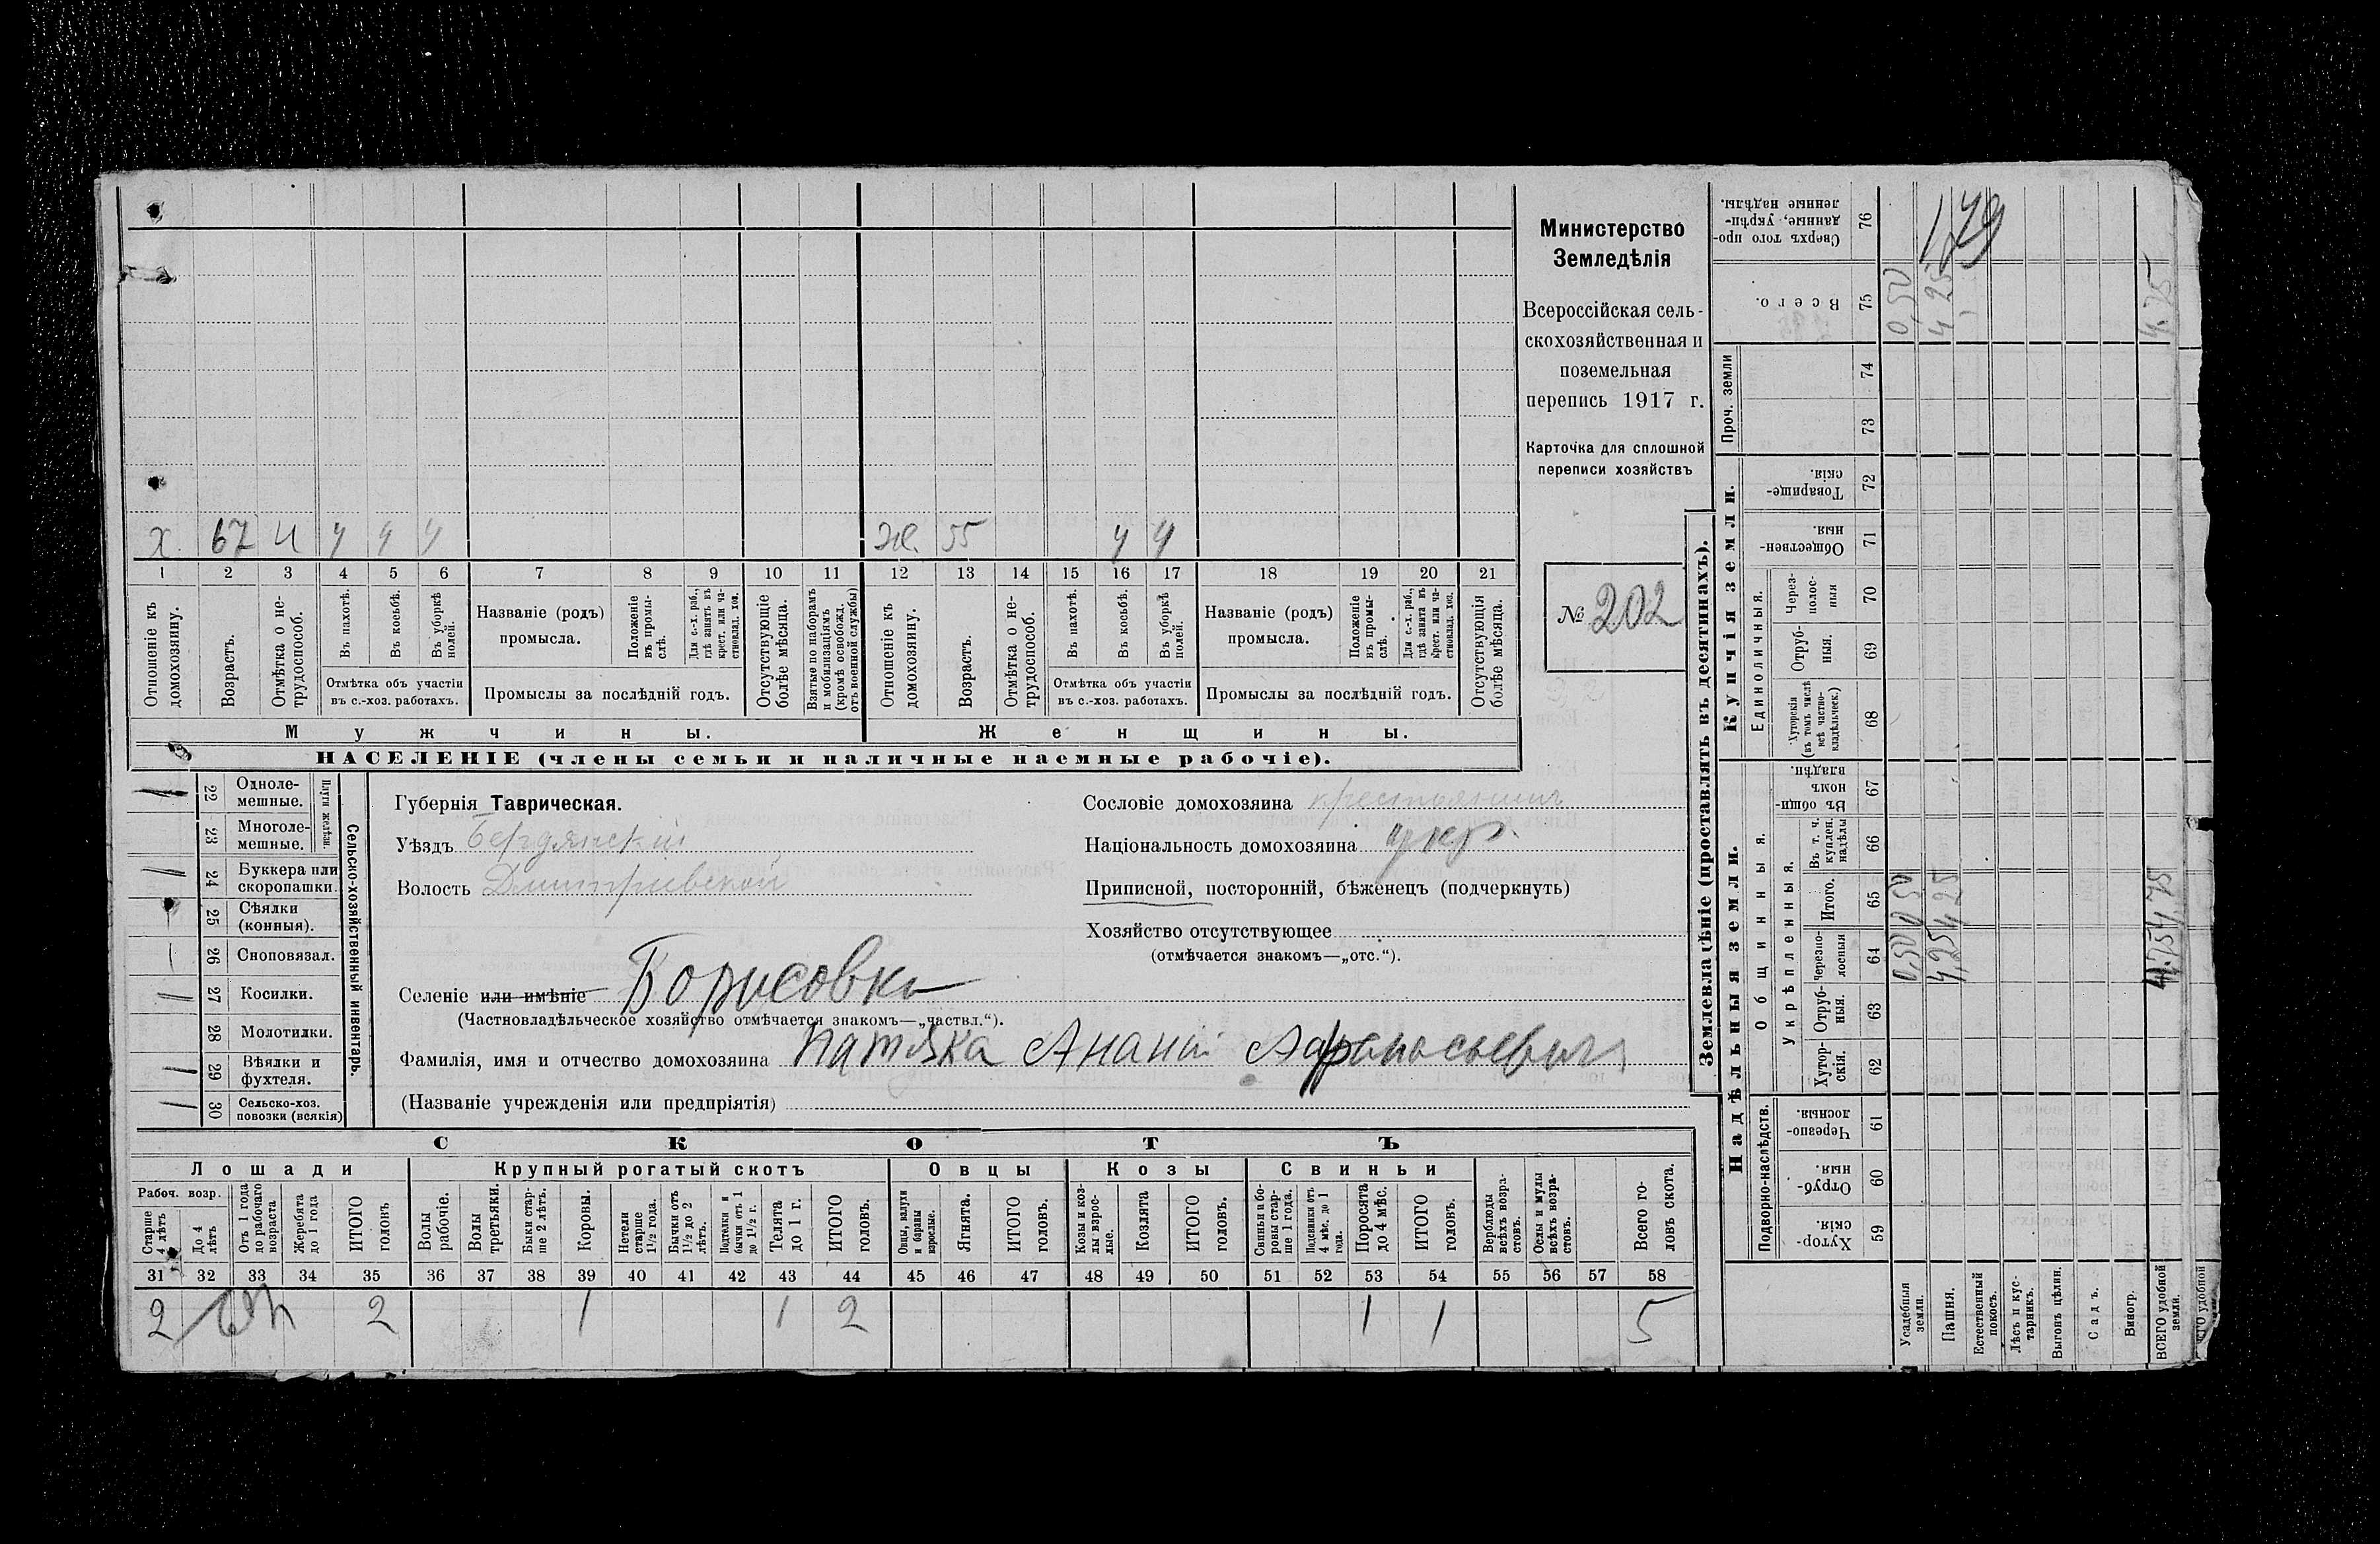 х 67 и у у у ж. 55 у у
1 2 3 4 5 6 7 8 9 10 11 12 13 14 15 16 17 18 19 20 21
Отношеніе къ домохозяину.
Возрастъ.
Отмѣтка о не-трудоспособ.
Въ пахотѣ.
Въ косьбѣ.
Въ уборкѣ полей.
Отмѣтка объ участіи
въ с.-хоз. работахъ.
Названіе (родъ)
промысла.
Положеніе въ промы-слѣ.
Для с.-х. раб., гдѣ занятъ въ крест. или ча-стновлад. хоз.
Промыслы за послѣдній годъ.
Отсутствующіе болѣе мѣсяца.
Взятые по наборамъ и мобилизаціямъ (кромѣ освобожд. отъ военной службы)
Отношеніе къ домохозяину.
Возрастъ.
Отмѣтка о не-трудоспособ.
Въ пахотѣ.
Въ косьбѣ.
Въ уборкѣ полей.
Отмѣтка объ участіи
въ с.-хоз. работахъ.
Названіе (родъ)
промысла.
Положеніе въ промы-слѣ.
Для с.-х. раб., гдѣ занятъ въ крест. или ча-стновлад. хоз.
Промыслы за послѣдній годъ.
Отсутствующія болѣе мѣсяца.
Мужчины.
Женщины.
НАСЕЛЕНІЕ (члены семьи и наличные наемные рабочіе).
Министерство
Земледѣлія
Всероссійская сель-
скохозяйственная и
поземельная
перепись 1917 г.
Карточка для сплошной
переписи хозяйствъ
№ 202
22 Одноле-мешные.
23 Многоле-мешные.
Плуги желѣзн.
24 Буккера или скоропашки.
25 Сѣялки (конныя).
26 Сноповязал.
27 Косилки.
28 Молотилки.
29 Вѣялки и фухтеля.
30 Сельско-хоз. повозки (всякія)
Сельско-хозяйственный инвентарь.
Губернія Таврическая.
Уѣздъ Бердянскій
Волость Дмитріевской
Селеніе или имѣніе Борисовка
(Частновладѣльческое хозяйство отмѣчается знакомъ—„частвл.“).
Фамилія, имя и отчество домохозяина Патяка Ананій Афанасьевич
(Названіе учрежденія или предпріятія)
Сословіе домохозяина крестьянинъ
Національность домохозяина укр.
Приписной, посторонній, бѣженецъ (подчеркнуть)
Хозяйство отсутствующее
(отмѣчается знакомъ—„отс.“).
СКОТЪ
Лошади
Крупный рогатый скотъ
Овцы
Козы
Свиньи
Рабоч. возр.
Старше 4 лѣтъ
До 4 лѣтъ
Отъ 1 года до рабочаго возраста
Жеребята до 1 года
ИТОГО головъ
Волы рабочіе.
Волы третьяки.
Быки стар-ше 2 лѣтъ.
Коровы.
Нетели старше 1½ года.
Бычки отъ 1½ до 2 лѣтъ.
Подтелки и бычки отъ 1 до 1½ г.
Телята до 1 г.
ИТОГО головъ.
Овцы, валухи и бараны взрослые.
Ягнята.
ИТОГО головъ.
Козы и коз-лы взрос-лые.
Козлята
ИТОГО головъ.
Свиньи и бо-ровы стар-ше 1 года.
Подсвинки отъ 4 мѣс. до 1 года.
Поросята до 4 мѣс.
ИТОГО головъ.
Верблюды всѣхъ возра-стовъ.
Ослы и мулы всѣхъ возра-стовъ.
Всего го-ловъ скота.
31 32 33 34 35 36 37 38 39 40 41 42 43 44 45 46 47 48 49 50 51 52 53 54 55 56 57 58
2 2 1 1 2 1 1 5
Землевладѣніе (проставлять въ десятинахъ).
Надѣльныя земли.
Купчія земли.
Проч. земли
Подворно-наслѣдств.
Общинныя.
Укрѣпленныя.
Единоличныя.
Сверхъ того про-данные, укрѣп-ленные надѣлы. 76
Всего. 75
74
73
Товарище-скія. 72
Обществен-ныя. 71
Через-полос-ныя 70
Отруб-ныя. 69
Хуторскія (въ томъ числѣ всѣ частно-владѣльческ.) 68
Въ общи-номъ владѣн. 67
Въ т. ч. куплен. надѣлы 66
Итого. 65
Черезпо-лосныя 64
Отруб-ныя. 63
Хутор-скія. 62
Черезпо-лосныя. 61
Отруб-ныя. 60
Хутор-скія. 59
179
Усадебныя земли. 0,50 0,50 0,50
Пашня. 4,25 4,25 4,25
Естественный покосъ.
Лѣсъ и кус-тарникъ.
Выгонъ цѣлин.
Садъ.
Виногр.
ВСЕГО удобной земли. 4,75 4,75 4,75